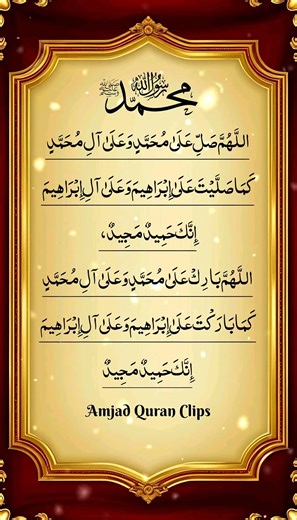 محمد رسول الله ﷺ
اللَّهُمَّ صَلِّ عَلَىٰ مُحَمَّدٍ وَعَلَىٰ آلِ مُحَمَّدٍ
كَمَا صَلَّيْتَ عَلَىٰ إِبْرَاهِيمَ وَعَلَىٰ آلِ إِبْرَاهِيمَ
إِنَّكَ حَمِيدٌ مَجِيدٌ،
اللَّهُمَّ بَارِكْ عَلَىٰ مُحَمَّدٍ وَعَلَىٰ آلِ مُحَمَّدٍ
كَمَا بَارَكْتَ عَلَىٰ إِبْرَاهِيمَ وَعَلَىٰ آلِ إِبْرَاهِيمَ
إِنَّكَ حَمِيدٌ مَجِيدٌ
Amjad Quran Clips